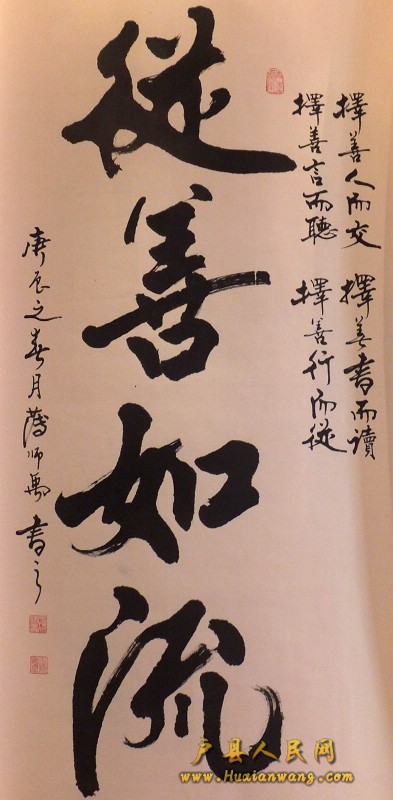 擇善人而交 擇善書而讀
擇善言而聽 擇善行而從
從善如流
庚辰之春月 師 書之
户县人民网
www.Huxianwang.com